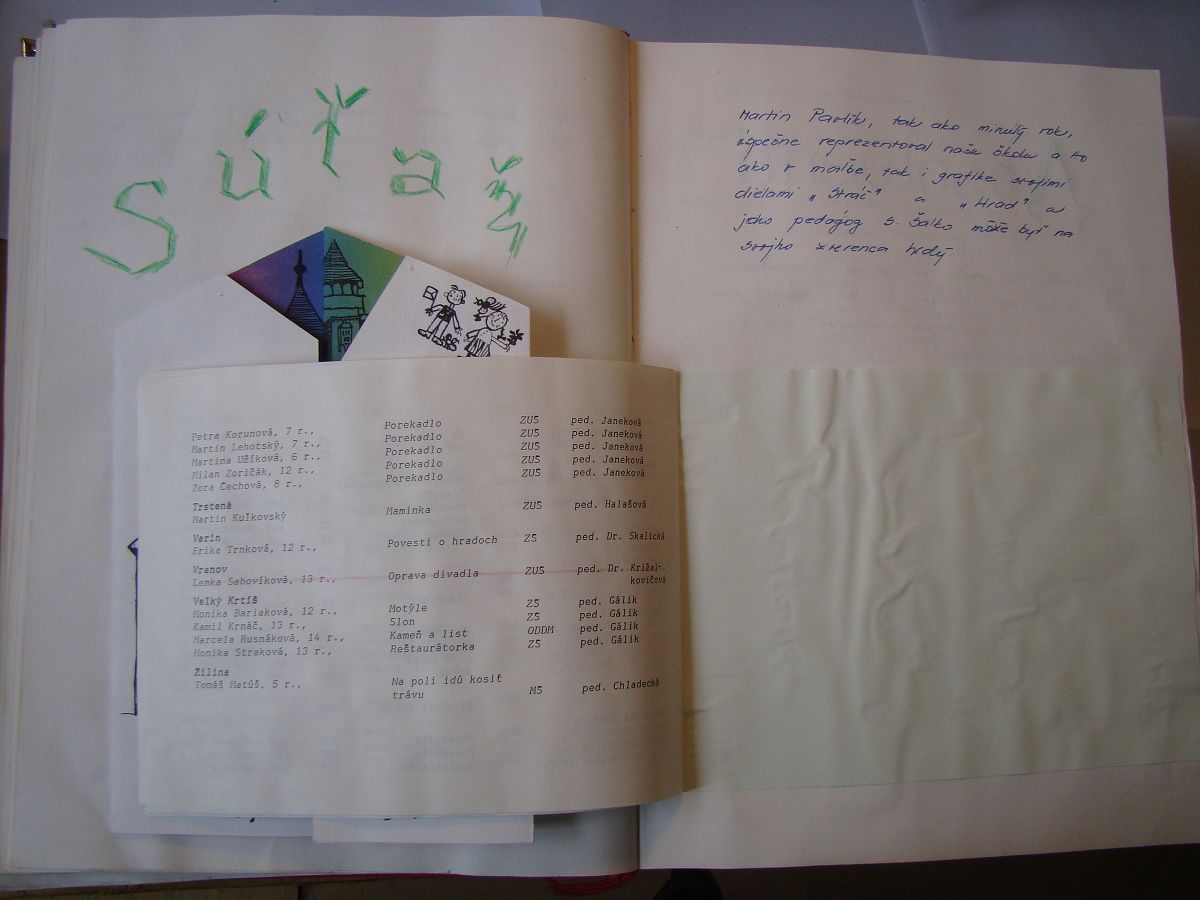 Súťaž
Martin Pavlík, tak ako minulý rok,
úspečne reprezentoval našu školu a to
ako v maľbe, tak i grafike svojimi
dielami „Stráč" a „Hrad" a
jeho pedagóg s. Šalko môže byť na
svojho zverenca hrdý
Petra Korunová, 7 r., Porekadlo ZUŠ ped. Janeková
Martin Lehotský, 7 r., Porekadlo ZUŠ ped. Janeková
Martina Užíková, 6 r., Porekadlo ZUŠ ped. Janeková
Milan Zoričák, 12 r., Porekadlo ZUŠ ped. Janeková
Zora Čechová, 8 r., Porekadlo ZUŠ ped. Janeková
Trstená
Martin Kuľkovský Maminka ZUŠ ped. Halašová
Varín
Erika Trnková, 12 r., Povesti o hradoch ZŠ ped. Dr. Skalická
Vranov
Lenka Sabovíková, 13 r., Oprava divadla ZUŠ ped. Dr. Križal-
kovičová
Veľký Krtíš
Monika Bariaková, 12 r., Motýle ZŠ ped. Gálik
Kamil Krnáč, 13 r., Slon ZŠ ped. Gálik
Marcela Rusnáková, 14 r., Kameň a list ODDM ped. Gálik
Monika Straková, 13 r., Reštaurátorka ZŠ ped. Gálik
Žilina
Tomáš Matúš, 5 r., Na poli idú kosiť
trávu MŠ ped. Chladecká